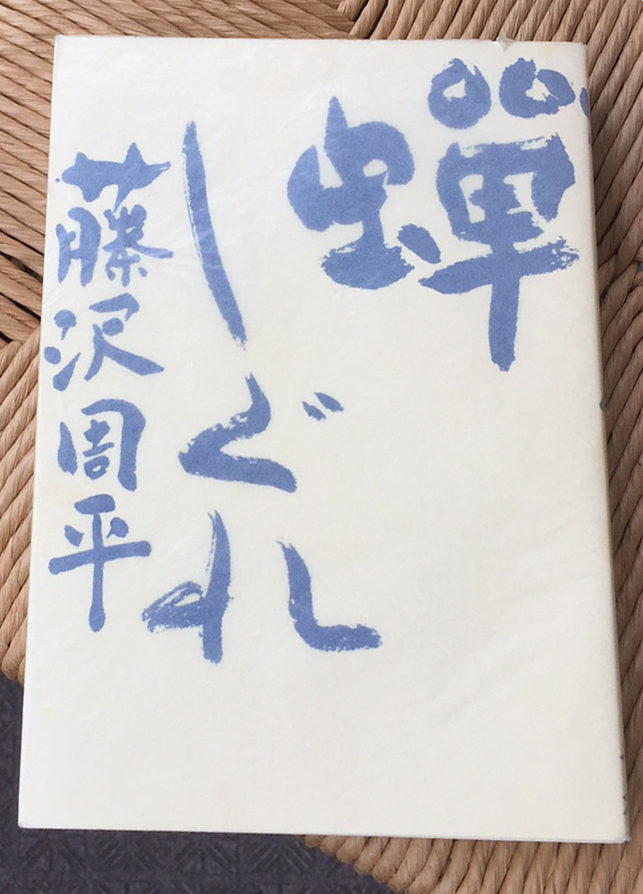 蝉しぐれ
藤沢周平